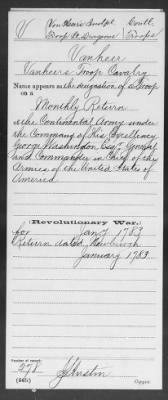 V Von Heer's Indpt. Contl.
Troop Lt. Dragoons Troops
Vanheer
Vanheers Troop Cavalry
Name appears as the designation of a Troop
on a
Monthly Return
of the Continental Army under
the Command of His Excellency
George Washington Esqr. General
and Commander in Chief of the
Armies of the United States of
America
Revolutionary War.
for Jan'y 1783
Return dated Newburgh
January 1783
Number of record:
278
(561)
Copyist.